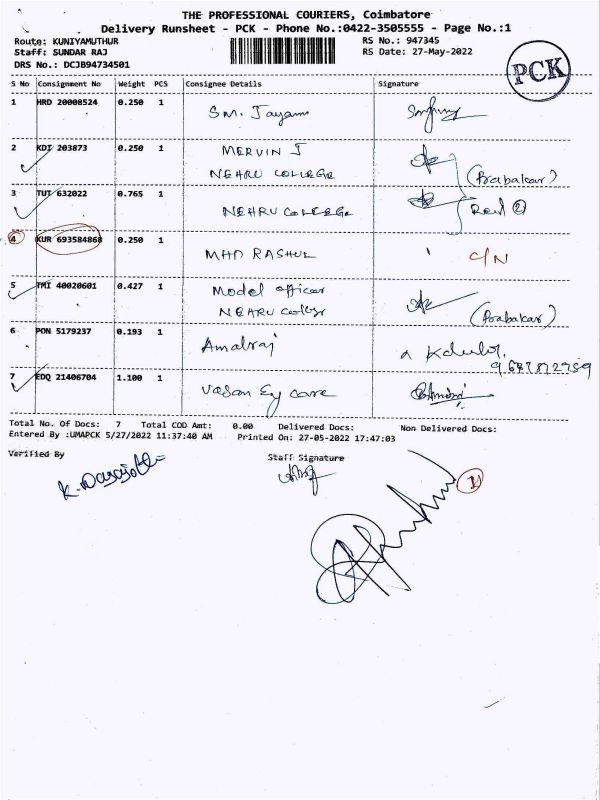 THE PROFESSIONAL COURIERS, Coimbatore
Delivery Runsheet - PCK - Phone No.:0422-3505555 - Page No.:1
Route: KUNIYAMUTHUR RS No.: 947345
Staff: SUNDAR RAJ RS Date: 27-May-2022
DRS No.: DCJB94734501
PCK
S No Consignment No Weight PCS Consignee Details Signature
1 HRD 20008524 0.250 1 SM. Jayam
2 KDI 203873 0.250 1 MERVIN J
NEHRU COLLEGE (Prabakar)
3 TUT 632022 0.765 1 NEHRU COLLEGE Red 2
4 KUR 693584868 0.250 1 MHD RASHUL C/N
5 TMI 40020601 0.427 1 Model officer
NEHRU College (Prabakar)
6 PON 5179237 0.193 1 Amalraj
7 EDQ 21406704 1.100 1 Vasan Ey care
Total No. Of Docs: 7 Total COD Amt: 0.00 Delivered Docs: Non Delivered Docs:
Entered By :UMAPCK 5/27/2022 11:37:40 AM Printed On: 27-05-2022 17:47:03
Verified By Staff Signature